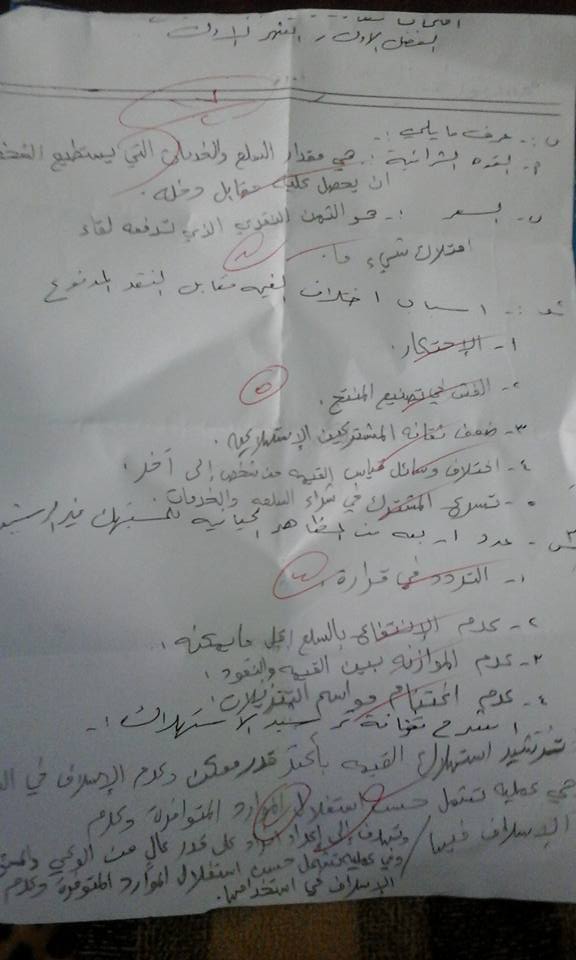 الفصل الاول / الشهر الاول
س١:- عرف ما يلي :-
أ- القوة الشرائية :- هي مقدار السلع والخدمات التي يستطيع الشخص
ان يحصل عليه مقابل دخله.
ب- السعر :- هو الثمن النقدي الذي تدفعه لقاء
امتلاك شيء ما.
:- اسباب اختلاف القيمه مقابل النقد المدفوع
١- الإحتكار.
٢- الغش في تصنيع المنتج.
٥
٣- ضعف ثقافة المشتركين الإستهلاكيه.
٤- اختلاف وسائل قياس القيمه من شخص إلى آخر.
٥- تسرع المشترك في شراء السلعه والخدمات
س٣- عدد اربعه من المظاهر الحياتيه للمستهلك غير الرشيد
١- التردد في قرارة.
٢- عدم الإنتفاع بالسلع اجل ما يمكنه.
٣- عدم الموازنه بين القيمه والنقود.
٤- عدم اغتنام مواسم التنزيلات.
اشرح ثقافة ترشيد الاستهلاك :-
ترشيد استهلاك القيمه بأكبر قدر ممكن وعدم الإسراف في
هي عمليه تتمثل حسن استغلال الموارد المتوافرة وعدم
الإسراف فيها / وتهدف إلى إعداد افراد على قدر عال من الوعي
وهي عمليه تتمثل حسن استغلال الموارد المتوفرة وعدم
الإسراف في استخدامها.